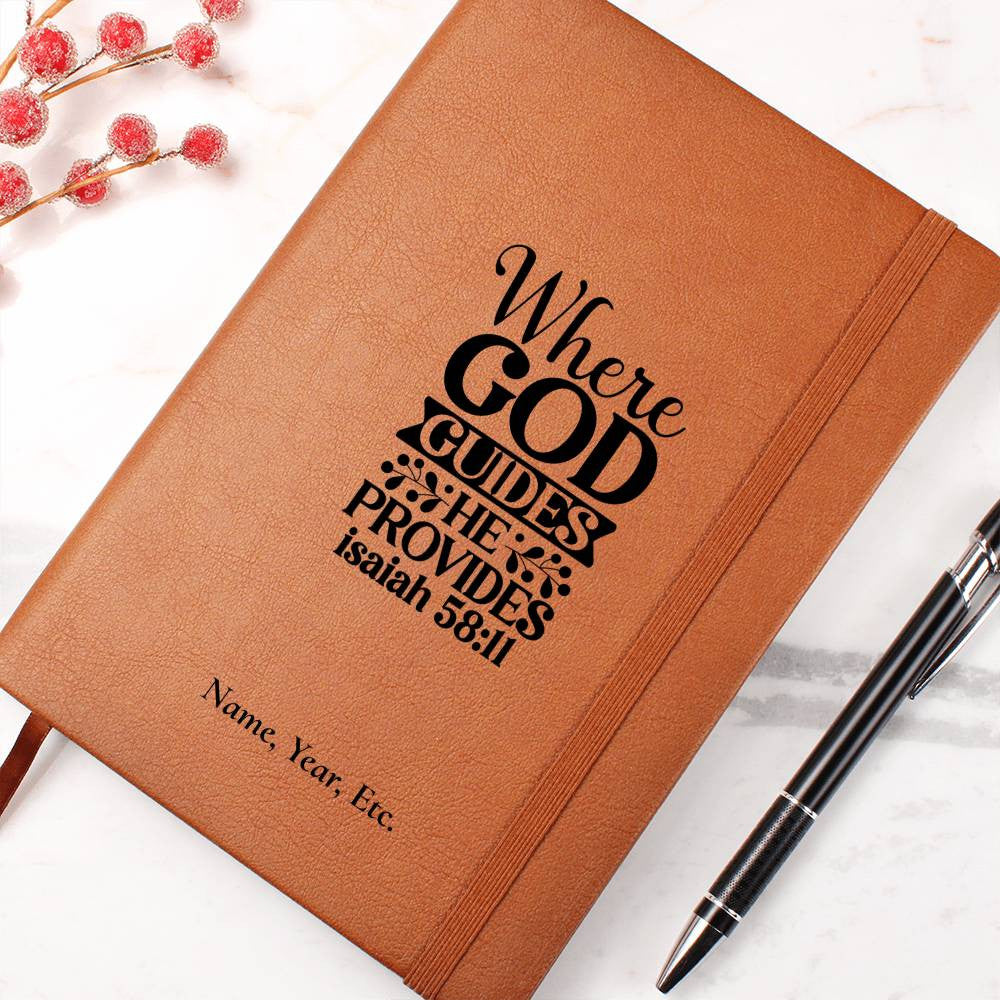 Where
GOD
GUIDES
HE
PROVIDES
isaiah 58:11
Name, Year, Etc.